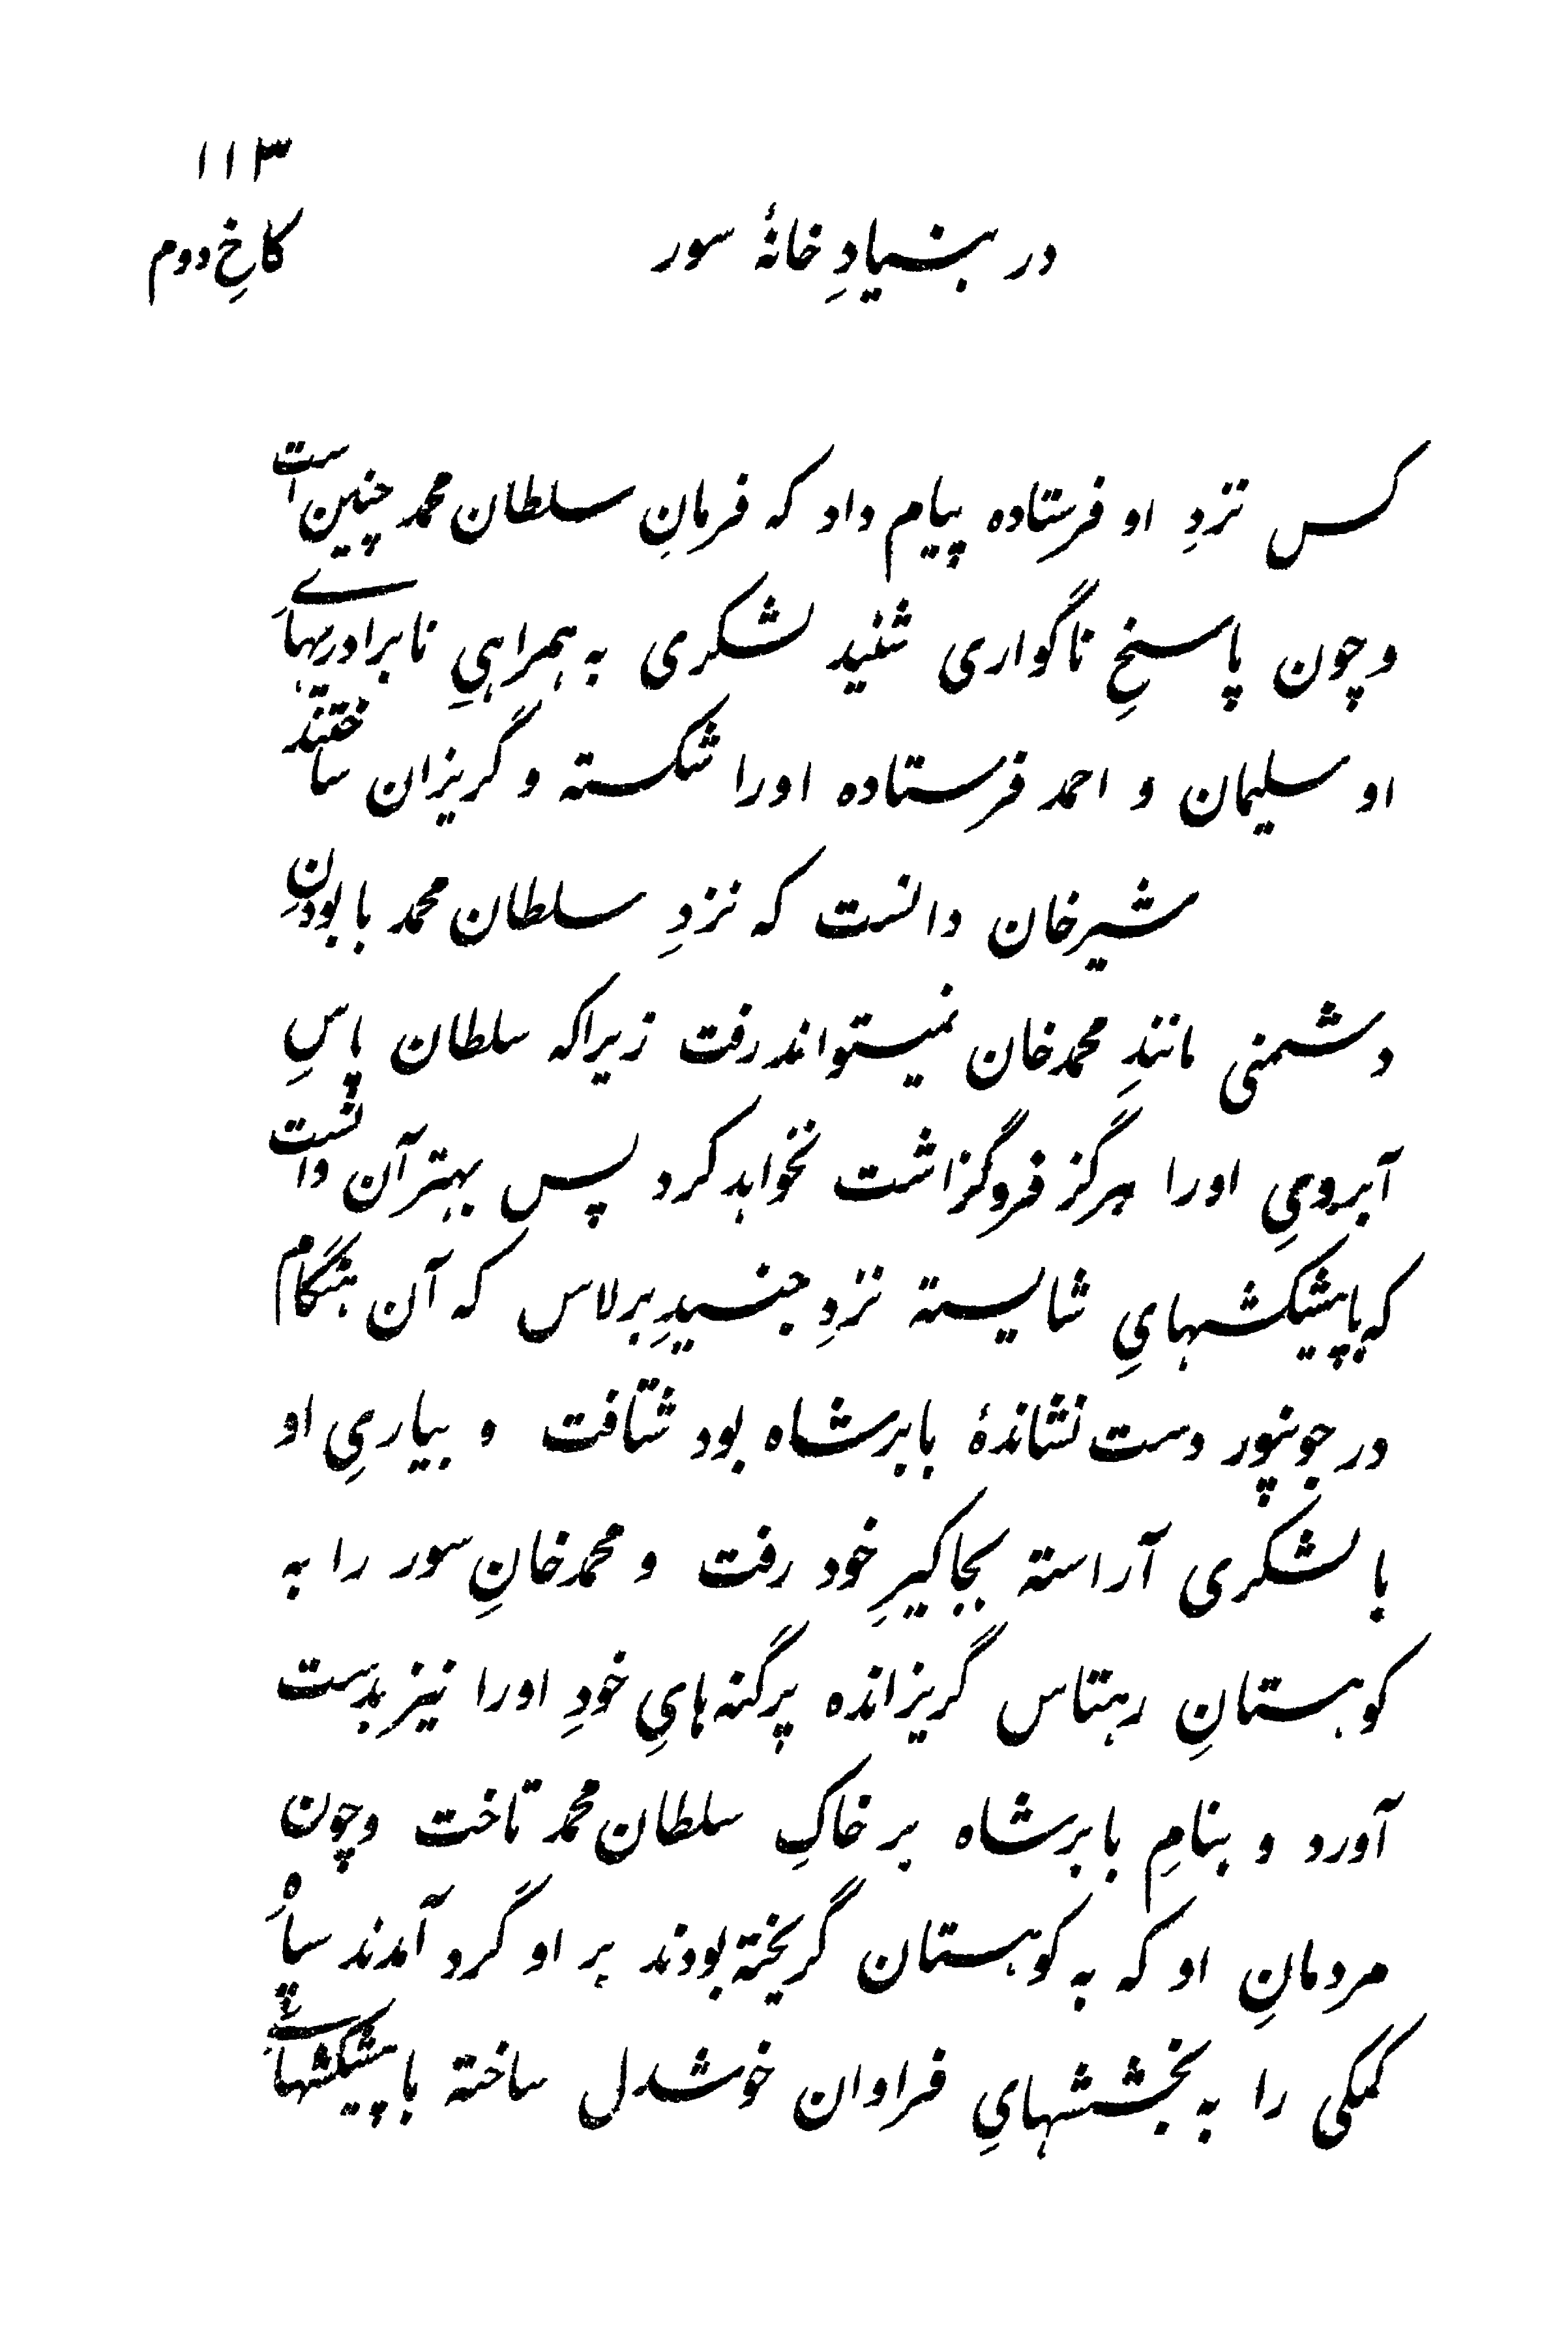 ۱۱۳
در بنیادِ خانهٔ سور
کاخِ دوم
کس نزدِ او فرستاده پیام داد که فرمانِ سلطان محمد چنین است
و چون پاسخِ ناگواری شنید لشکری به همراهیِ نابرادریهایِ
او سلیمان و احمد فرستاده اورا شکسته و گریزان ساختند
شیرخان دانست که نزدِ سلطان محمد با بودنِ
دشمنی مانندِ محمدخان نمیتواند رفت زیراکه سلطان پاسِ
آبرویِ اورا هرگز فروگزاشت نخواهد کرد پس بهتر آن دانست
که باپیشکشهایِ شایسته نزدِ جنیدِ برلاس که آن هنگام
در جونپور دست نشاندهٔ بابرشاه بود شتافت و بیاریِ او
با لشکری آراسته بجاگیرِ خود رفت و محمدخانِ سور را به
کوهستانِ رهتاس گریزانده پرگنه‌هایِ خودِ اورا نیز بدست
آورد و بنامِ بابرشاه بر خاکِ سلطان محمد تاخت و چون
مردمانِ او که به کوهستان گریخته بودند بر او گرد آمدند سپاهِ
کمکی را به بخششهایِ فراوان خوشدل ساخته با پیشکشهایِ